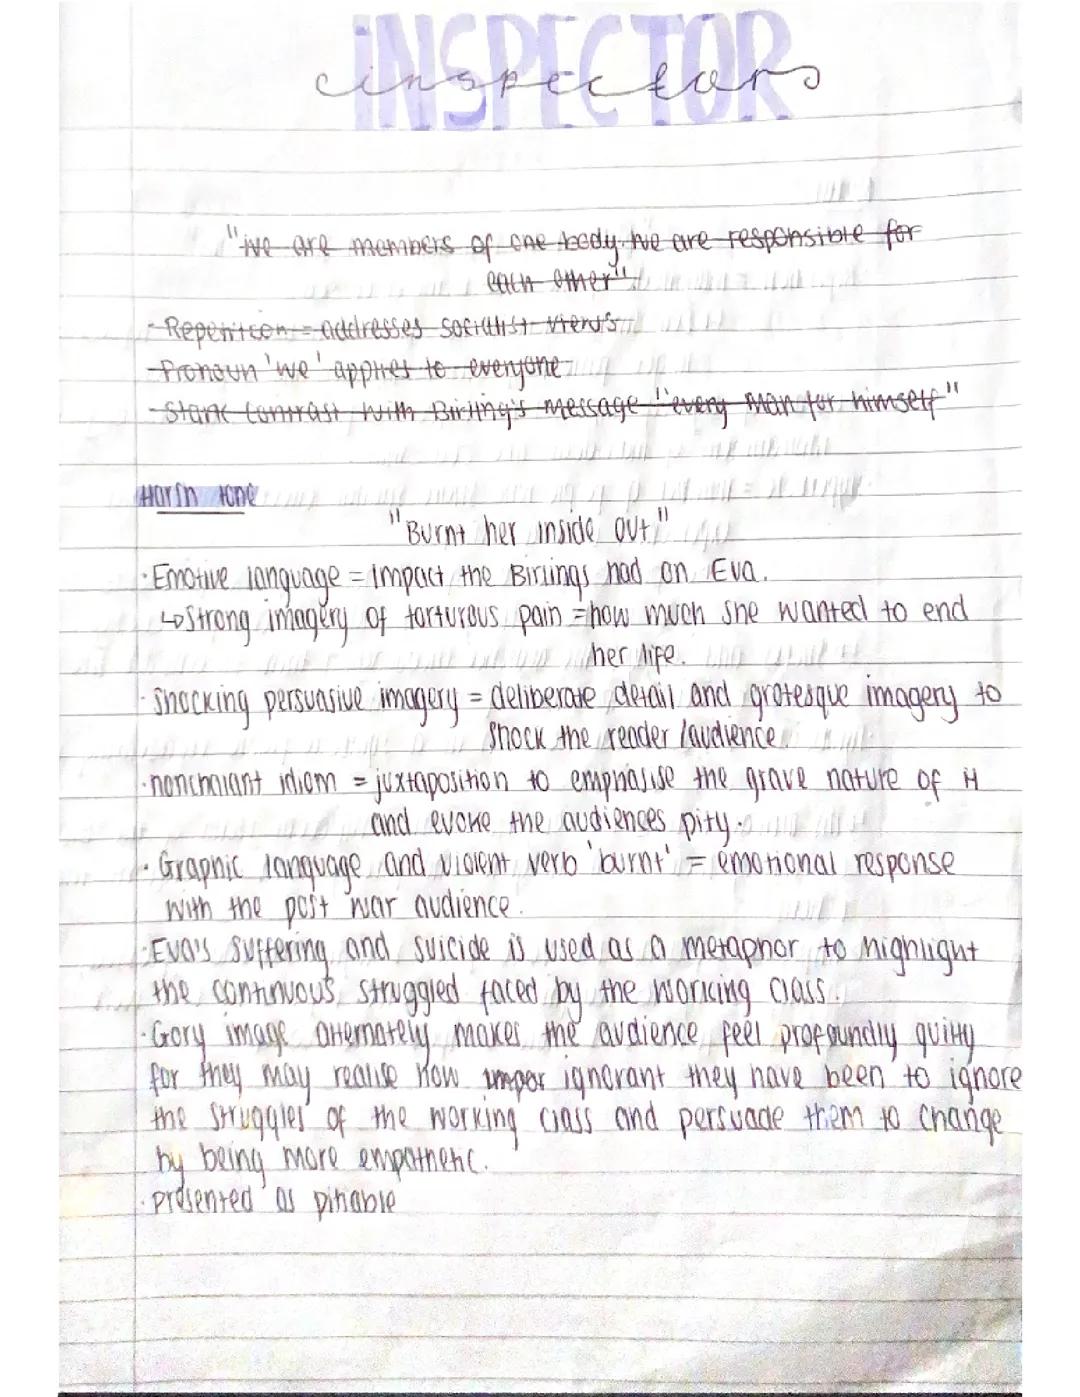 INSPECTOR
inspector
"We are members of one body. We are responsible for
each other"
- Repetition = addresses socialist views
- Pronoun 'we' applies to everyone
- Stark contrast with Birling's message "every man for himself"
Harsh tone
"Burnt her inside out"
· Emotive language = impact the Birlings had on Eva.
↳ Strong imagery of torturous pain = how much she wanted to end
her life.
· Shocking persuasive imagery = deliberate detail and grotesque imagery to
shock the reader/audience.
· nonchalant idiom = juxtaposition to emphasise the grave nature of it
and evoke the audiences pity.
· Graphic language and violent verb 'burnt' = emotional response
with the post war audience.
· Eva's suffering and suicide is used as a metaphor to highlight
the continuous struggled faced by the working class.
· Gory image alternately makes the audience feel profoundly guilty
for they may realise how ignorant they have been to ignore
the struggles of the working class and persuade them to change
by being more empathetic.
· presented as pitiable